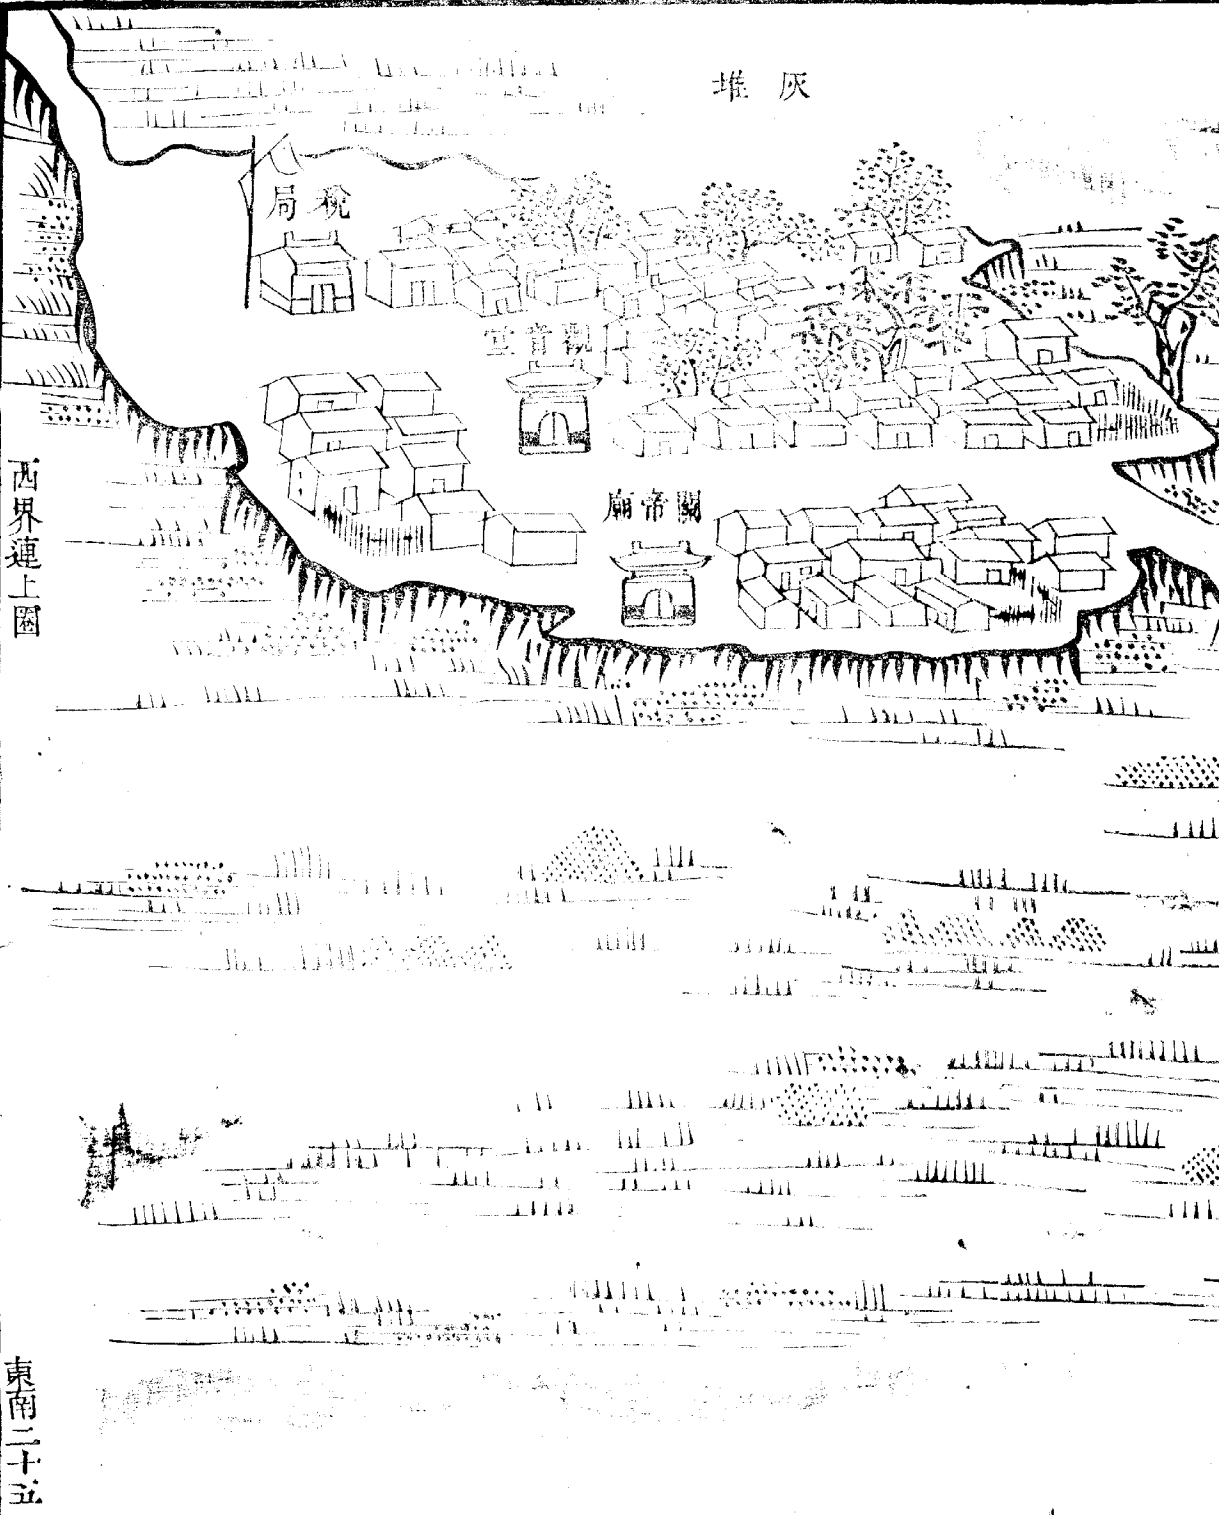 灰堆
稅局
觀音堂
關帝廟
西界連上圖
東南二十五